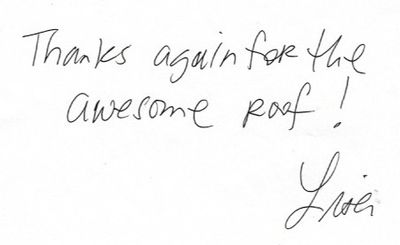 Thanks again for the
awesome roof!